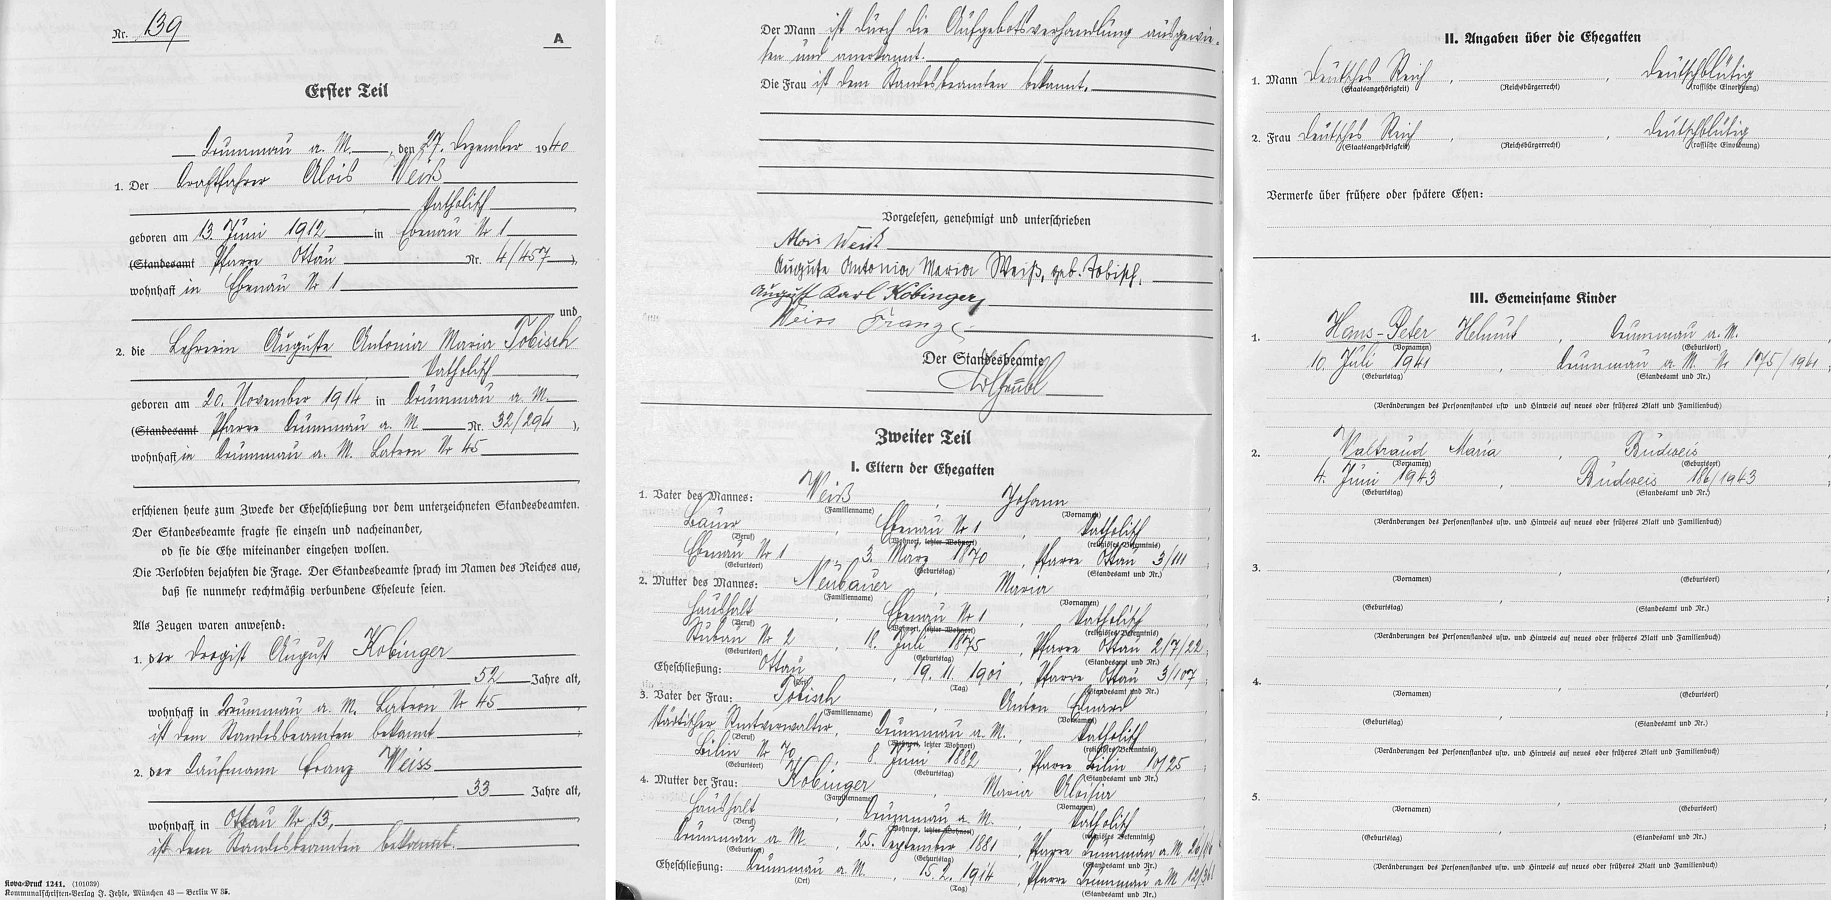 Nr. 139
A
Erster Teil
Krummau a. M., den 27. Dezember 1940
1. Der Kraftfahrer Alois Weiß
Katholisch
geboren am 13. Juni 1912 in Ebenau Nr 1
(Standesamt Pfarre Ottau Nr. 4/457),
wohnhaft in Ebenau Nr 1
und
2. die Lehrerin Auguste Antonia Maria Tobisch
Katholisch
geboren am 20. November 1914 in Krummau a. M.
(Standesamt Pfarre Krummau a. M. Nr. 32/294),
wohnhaft in Krummau a. M. Latron Nr 45
erschienen heute zum Zwecke der Eheschließung vor dem unterzeichneten Standesbeamten.
Der Standesbeamte fragte sie einzeln und nacheinander,
ob sie die Ehe miteinander eingehen wollen.
Die Verlobten bejahten die Frage. Der Standesbeamte sprach im Namen des Reiches aus,
daß sie nunmehr rechtmäßig verbundene Eheleute seien.
Als Zeugen waren anwesend:
1. der Drogist August Kobinger
52 Jahre alt,
wohnhaft in Krummau a. M. Latron Nr 45
ist dem Standesbeamten bekannt
2. der Kaufmann Franz Weiss
33 Jahre alt,
wohnhaft in Ottau Nr 13,
ist dem Standesbeamten bekannt.
Kova-Druck 1241. (101039)
Kommunalschriften-Verlag J. Jehle, München 43 — Berlin W 35.
Der Mann ist durch die Aufgebotsverhandlung ausgewie-
sen und anerkannt.
Die Frau ist dem Standesbeamten bekannt.
Vorgelesen, genehmigt und unterschrieben
Alois Weiß
Auguste Antonia Maria Weiß, geb. Tobisch.
August Karl Kobinger
Weiss Franz
Der Standesbeamte
Zweiter Teil
I. Eltern der Ehegatten
1. Vater des Mannes: Weiß, Johann
(Familienname) (Vornamen)
Bauer, Ebenau Nr 1, Katholisch
(Beruf) (Wohnort, letzter Wohnort) (religiöses Bekenntnis)
Ebenau Nr 1, 3. März 1870, Pfarre Ottau 3/111
(Geburtsort) (Geburtstag) (Standesamt und Nr.)
2. Mutter des Mannes: Neubauer, Maria
(Familienname) (Vornamen)
Haushalt, Ebenau Nr 1, Katholisch
(Beruf) (Wohnort, letzter Wohnort) (religiöses Bekenntnis)
Stuben Nr 2, Juli 1875, Pfarre Ottau 2/7/22
(Geburtsort) (Geburtstag) (Standesamt und Nr.)
Eheschließung: Ottau, 19. 11. 1901, Pfarre Ottau 3/107
(Ort) (Tag) (Standesamt und Nr.)
3. Vater der Frau: Tobisch, Anton Eduard
(Familienname) (Vornamen)
städtischer Amtverwalter, Krummau a. M., Katholisch
(Beruf) (Wohnort, letzter Wohnort) (religiöses Bekenntnis)
Bilin Nr 70, 8. Juni 1882, Pfarre Bilin 10/25
(Geburtsort) (Geburtstag) (Standesamt und Nr.)
4. Mutter der Frau: Kobinger, Maria Aloisia
(Familienname) (Vornamen)
Haushalt, Krummau a. M., Katholisch
(Beruf) (Wohnort, letzter Wohnort) (religiöses Bekenntnis)
Krummau a. M., 25. September 1881, Pfarre Krummau a. M.
(Geburtsort) (Geburtstag) (Standesamt und Nr.)
Eheschließung: Krummau a. M., 15. 2. 1914, Pfarre Krummau a. M.
(Ort) (Tag) (Standesamt und Nr.)
II. Angaben über die Ehegatten
1. Mann Deutsches Reich, , deutschblütig
(Staatsangehörigkeit) (Reichsbürgerrecht) (rassische Einordnung)
2. Frau Deutsches Reich, , deutschblütig
(Staatsangehörigkeit) (Reichsbürgerrecht) (rassische Einordnung)
Vermerke über frühere oder spätere Ehen:
III. Gemeinsame Kinder
1. Hans-Peter Helmut, Krummau a. M.
(Vornamen) (Geburtsort)
10. Juli 1941, Krummau a. M. Nr 175/1941
(Geburtstag) (Standesamt und Nr.)
(Veränderungen des Personenstandes usw. und Hinweis auf neues oder früheres Blatt und Familienbuch)
2. Waltraud Maria, Budweis
(Vornamen) (Geburtsort)
4. Juni 1943, Budweis 186/1943
(Geburtstag) (Standesamt und Nr.)
(Veränderungen des Personenstandes usw. und Hinweis auf neues oder früheres Blatt und Familienbuch)
3.
(Vornamen) (Geburtsort)
(Geburtstag) (Standesamt und Nr.)
(Veränderungen des Personenstandes usw. und Hinweis auf neues oder früheres Blatt und Familienbuch)
4.
(Vornamen) (Geburtsort)
(Geburtstag) (Standesamt und Nr.)
(Veränderungen des Personenstandes usw. und Hinweis auf neues oder früheres Blatt und Familienbuch)
5.
(Vornamen) (Geburtsort)
(Geburtstag) (Standesamt und Nr.)
(Veränderungen des Personenstandes usw. und Hinweis auf neues oder früheres Blatt und Familienbuch)